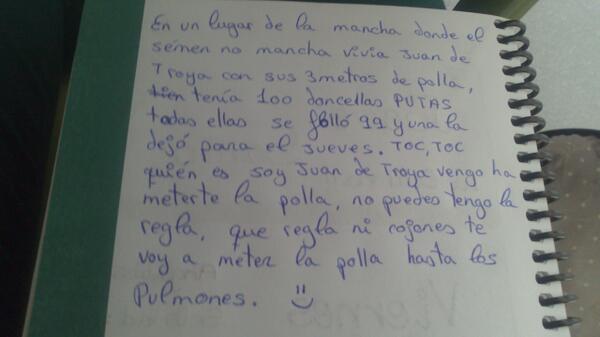 En un lugar de la mancha donde el
semen no mancha vivia Juan de
Troya con sus 3 metros de polla,
tien tenía 100 doncellas PUTAS
todas ellas se folló 99 y una la
dejó para el jueves. TOC, TOC
quién es soy Juan de Troya vengo ha
meterte la polla, no puedes tengo la
regla, que regla ni cojones te
voy a meter la polla hasta los
Pulmones.
Viernes